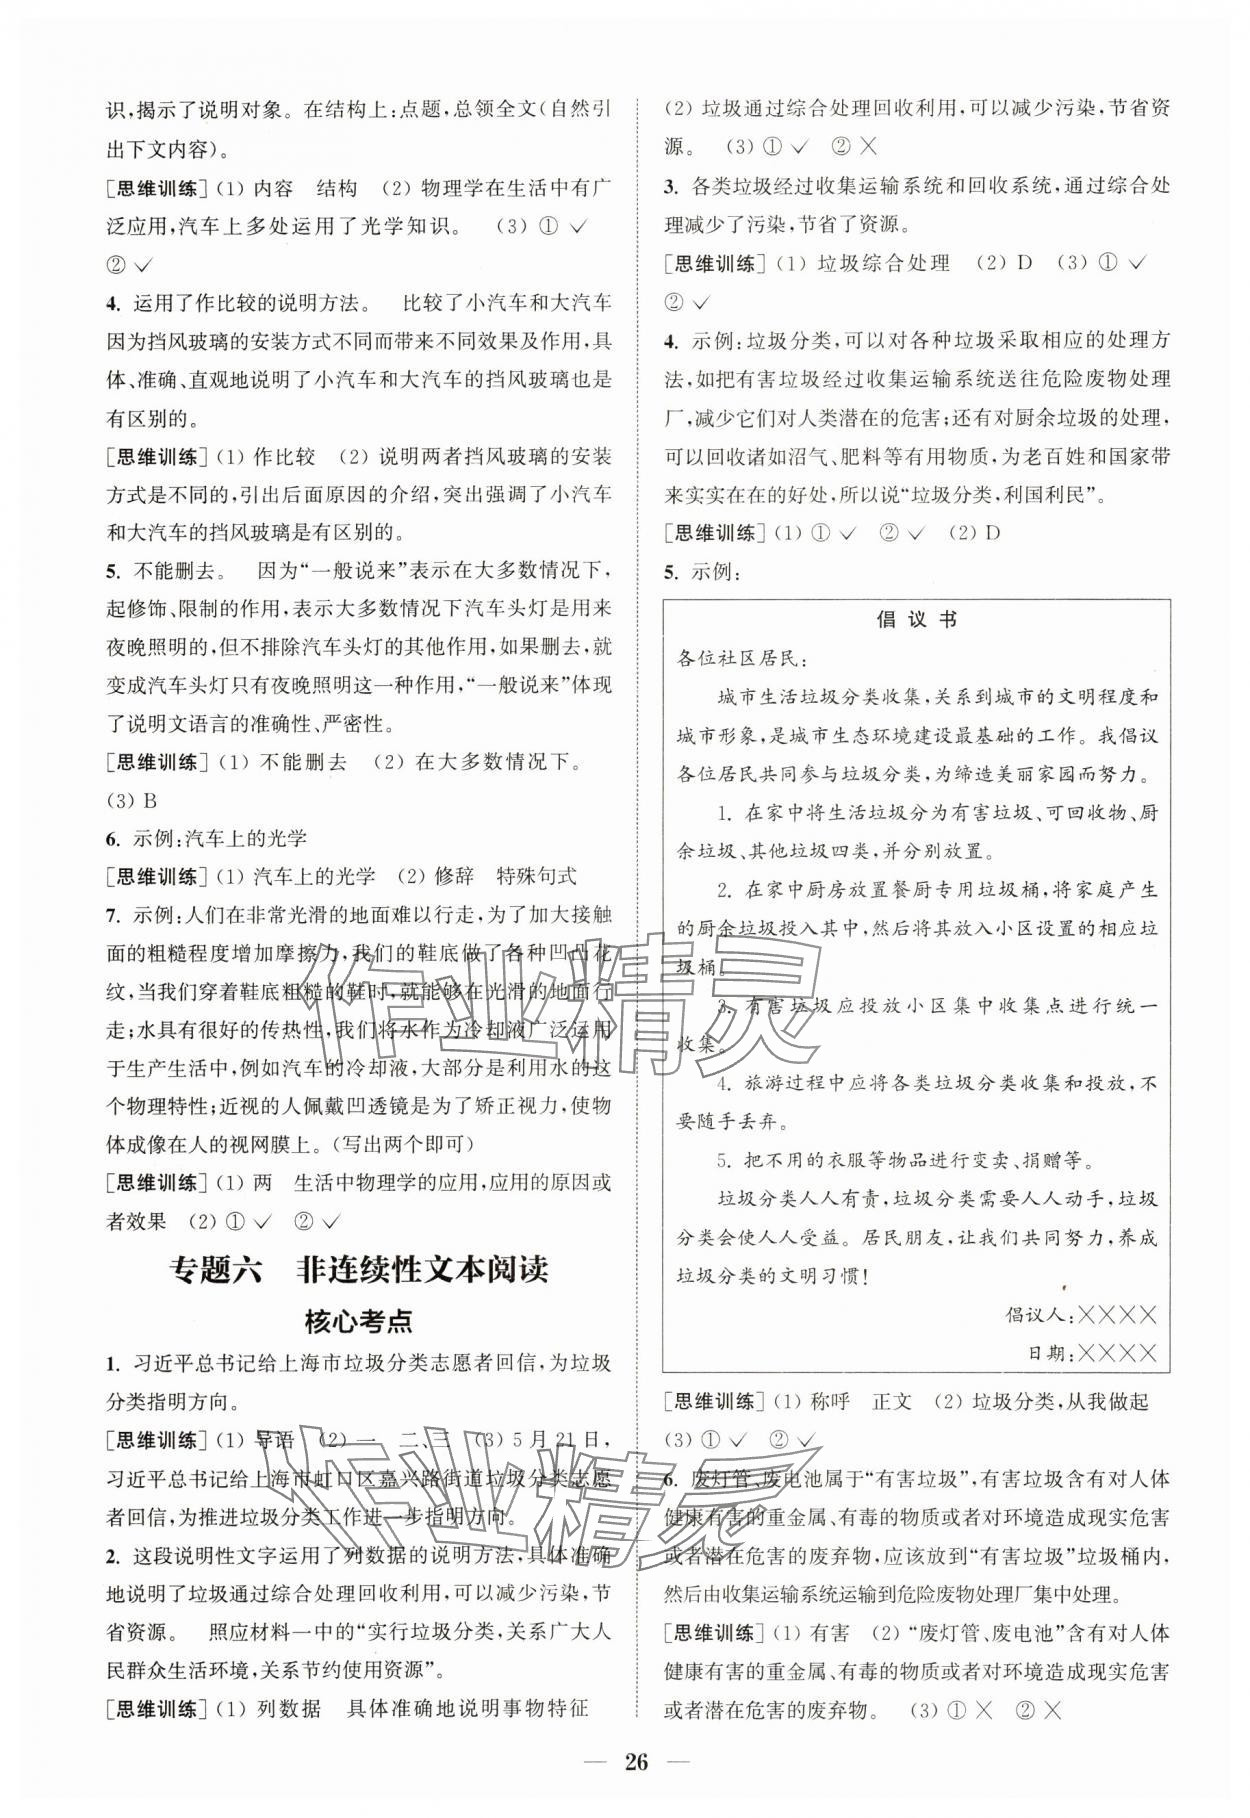 识,揭示了说明对象。在结构上:点题,总领全文(自然引
出下文内容)。
[思维训练](1) 内容　结构　(2) 物理学在生活中有广
泛应用,汽车上多处运用了光学知识。　(3) ① ✓
② ✓
4. 运用了作比较的说明方法。　比较了小汽车和大汽车
因为挡风玻璃的安装方式不同而带来不同效果及作用,具
体、准确、直观地说明了小汽车和大汽车的挡风玻璃也是
有区别的。
[思维训练](1) 作比较　(2) 说明两者挡风玻璃的安装
方式是不同的,引出后面原因的介绍,突出强调了小汽车
和大汽车的挡风玻璃是有区别的。
5. 不能删去。　因为“一般说来”表示在大多数情况下,
起修饰、限制的作用,表示大多数情况下汽车头灯是用来
夜晚照明的,但不排除汽车头灯的其他作用,如果删去,就
变成汽车头灯只有夜晚照明这一种作用,“一般说来”体现
了说明文语言的准确性、严密性。
[思维训练](1) 不能删去　(2) 在大多数情况下。
(3) B
6. 示例:汽车上的光学
[思维训练](1) 汽车上的光学　(2) 修辞　特殊句式
7. 示例:人们在非常光滑的地面难以行走,为了加大接触
面的粗糙程度增加摩擦力,我们的鞋底做了各种凹凸花
纹,当我们穿着鞋底粗糙的鞋时,就能够在光滑的地面行
走;水具有很好的传热性,我们将水作为冷却液广泛运用
于生产生活中,例如汽车的冷却液,大部分是利用水的这
个物理特性;近视的人佩戴凹透镜是为了矫正视力,使物
体成像在人的视网膜上。(写出两个即可)
[思维训练](1) 两　生活中物理学的应用,应用的原因或
者效果　(2) ① ✓　② ✓
专题六　非连续性文本阅读
核心考点
1. 习近平总书记给上海市垃圾分类志愿者回信,为垃圾
分类指明方向。
[思维训练](1) 导语　(2) 一　二、三　(3) 5 月 21 日,
习近平总书记给上海市虹口区嘉兴路街道垃圾分类志愿
者回信,为推进垃圾分类工作进一步指明方向。
2. 这段说明性文字运用了列数据的说明方法,具体准确
地说明了垃圾通过综合处理回收利用,可以减少污染,节
省资源。　照应材料一中的“实行垃圾分类,关系广大人
民群众生活环境,关系节约使用资源”。
[思维训练](1) 列数据　具体准确地说明事物特征
(2) 垃圾通过综合处理回收利用,可以减少污染,节省资
源。　(3) ① ✓　② ✕
3. 各类垃圾经过收集运输系统和回收系统,通过综合处
理减少了污染,节省了资源。
[思维训练](1) 垃圾综合处理　(2) D　(3) ① ✓
② ✓
4. 示例:垃圾分类,可以对各种垃圾采取相应的处理方
法,如把有害垃圾经过收集运输系统送往危险废物处理
厂,减少它们对人类潜在的危害;还有对厨余垃圾的处理,
可以回收诸如沼气、肥料等有用物质,为老百姓和国家带
来实实在在的好处,所以说“垃圾分类,利国利民”。
[思维训练](1) ① ✓　② ✓　(2) D
5. 示例:
倡议书
各位社区居民:
城市生活垃圾分类收集,关系到城市的文明程度和
城市形象,是城市生态环境建设最基础的工作。我倡议
各位居民共同参与垃圾分类,为缔造美丽家园而努力。
1. 在家中将生活垃圾分为有害垃圾、可回收物、厨
余垃圾、其他垃圾四类,并分别放置。
2. 在家中厨房放置餐厨专用垃圾桶,将家庭产生
的厨余垃圾投入其中,然后将其放入小区设置的相应垃
圾桶。
3. 有害垃圾应投放小区集中收集点进行统一
收集。
4. 旅游过程中应将各类垃圾分类收集和投放,不
要随手丢弃。
5. 把不用的衣服等物品进行变卖、捐赠等。
垃圾分类人人有责,垃圾分类需要人人动手,垃圾
分类会使人人受益。居民朋友,让我们共同努力,养成
垃圾分类的文明习惯!
倡议人:××××
日期:××××
[思维训练](1) 称呼　正文　(2) 垃圾分类,从我做起
(3) ① ✓　② ✓
6. 废灯管、废电池属于“有害垃圾”,有害垃圾含有对人体
健康有害的重金属、有毒的物质或者对环境造成现实危害
或者潜在危害的废弃物,应该放到“有害垃圾”垃圾桶内,
然后由收集运输系统运输到危险废物处理厂集中处理。
[思维训练](1) 有害　(2) “废灯管、废电池”含有对人体
健康有害的重金属、有毒的物质或者对环境造成现实危害
或者潜在危害的废弃物。　(3) ① ✕　② ✕
— 26 —
作业精灵
作业精灵